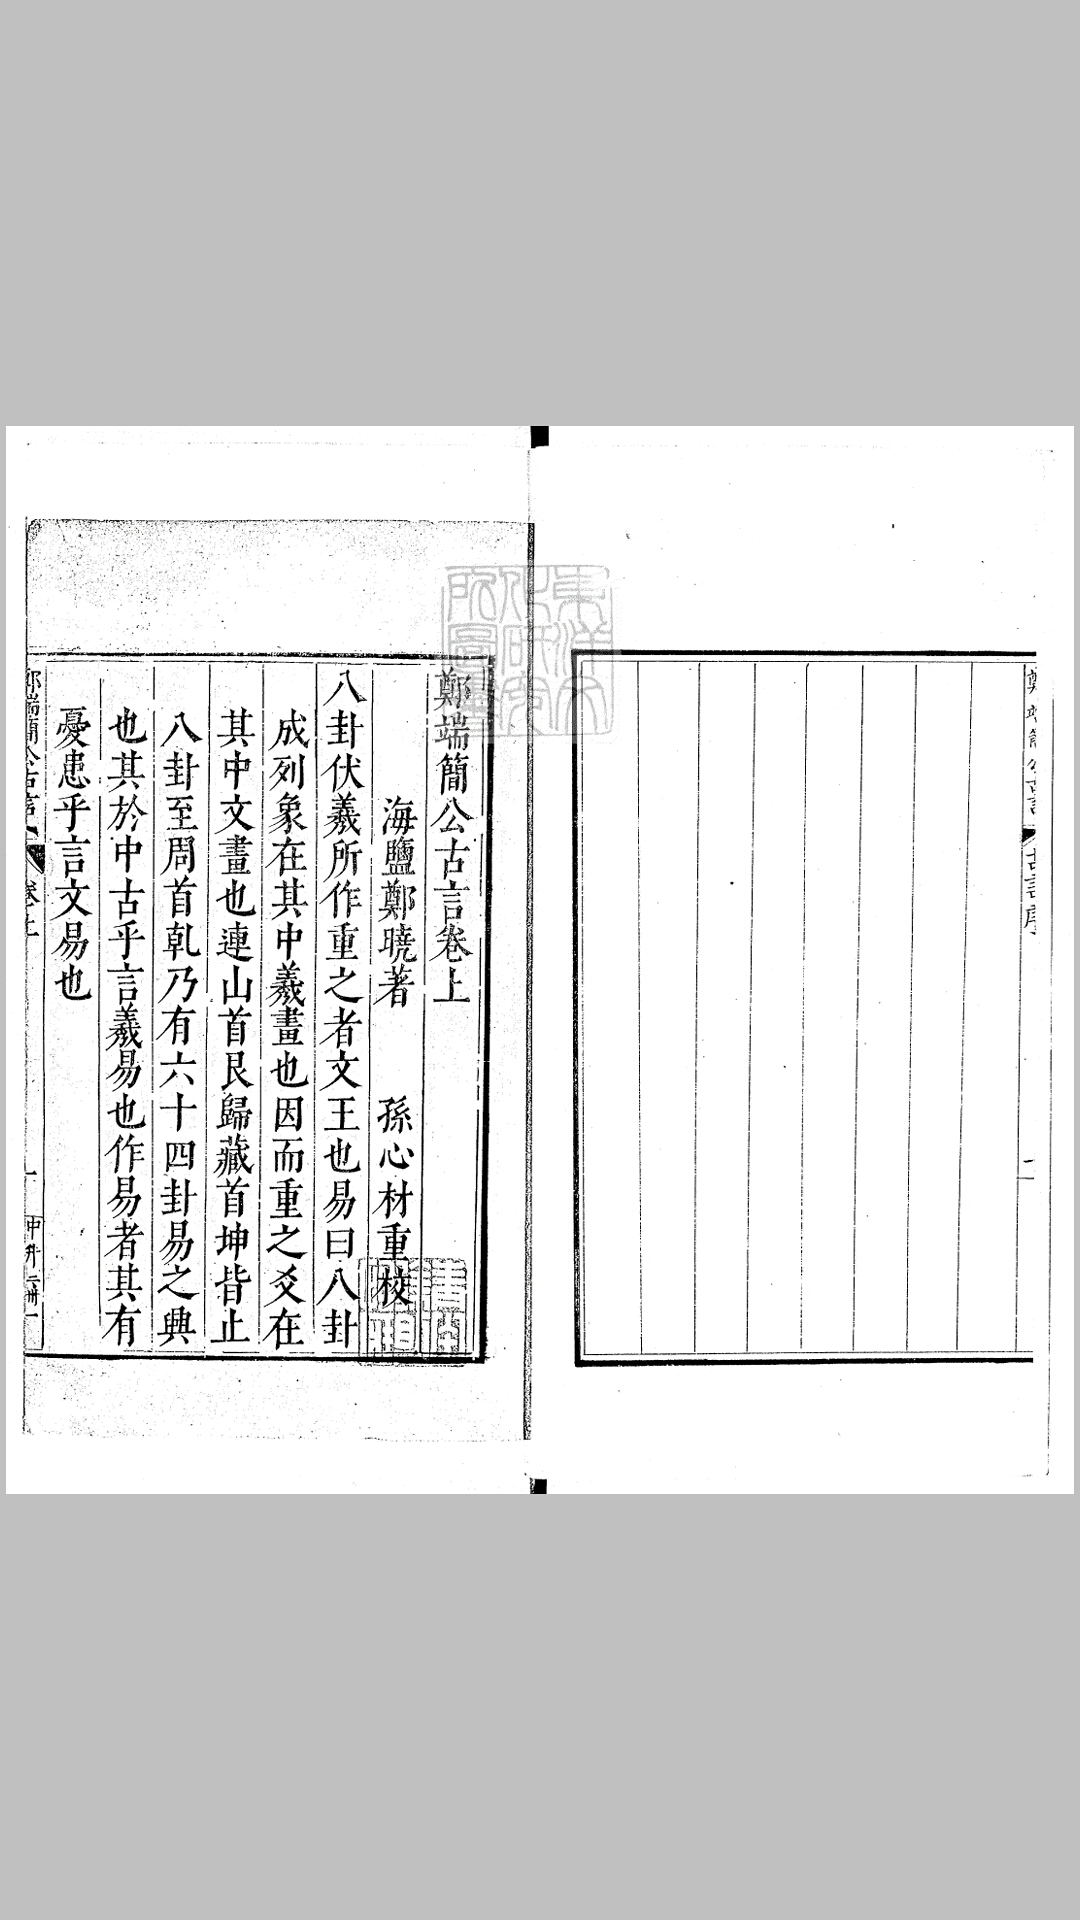 鄭端簡公古言
古言序
二
鄭端簡公古言卷上
海鹽鄭曉著　孫心材重校
八卦伏羲所作重之者文王也易曰八卦
成列象在其中羲畫也因而重之爻在
其中文畫也連山首艮歸藏首坤皆止
八卦至周首乹乃有六十四卦易之興
也其於中古乎言羲易也作易者其有
憂患乎言文易也
鄭端簡公古言
卷之上
一